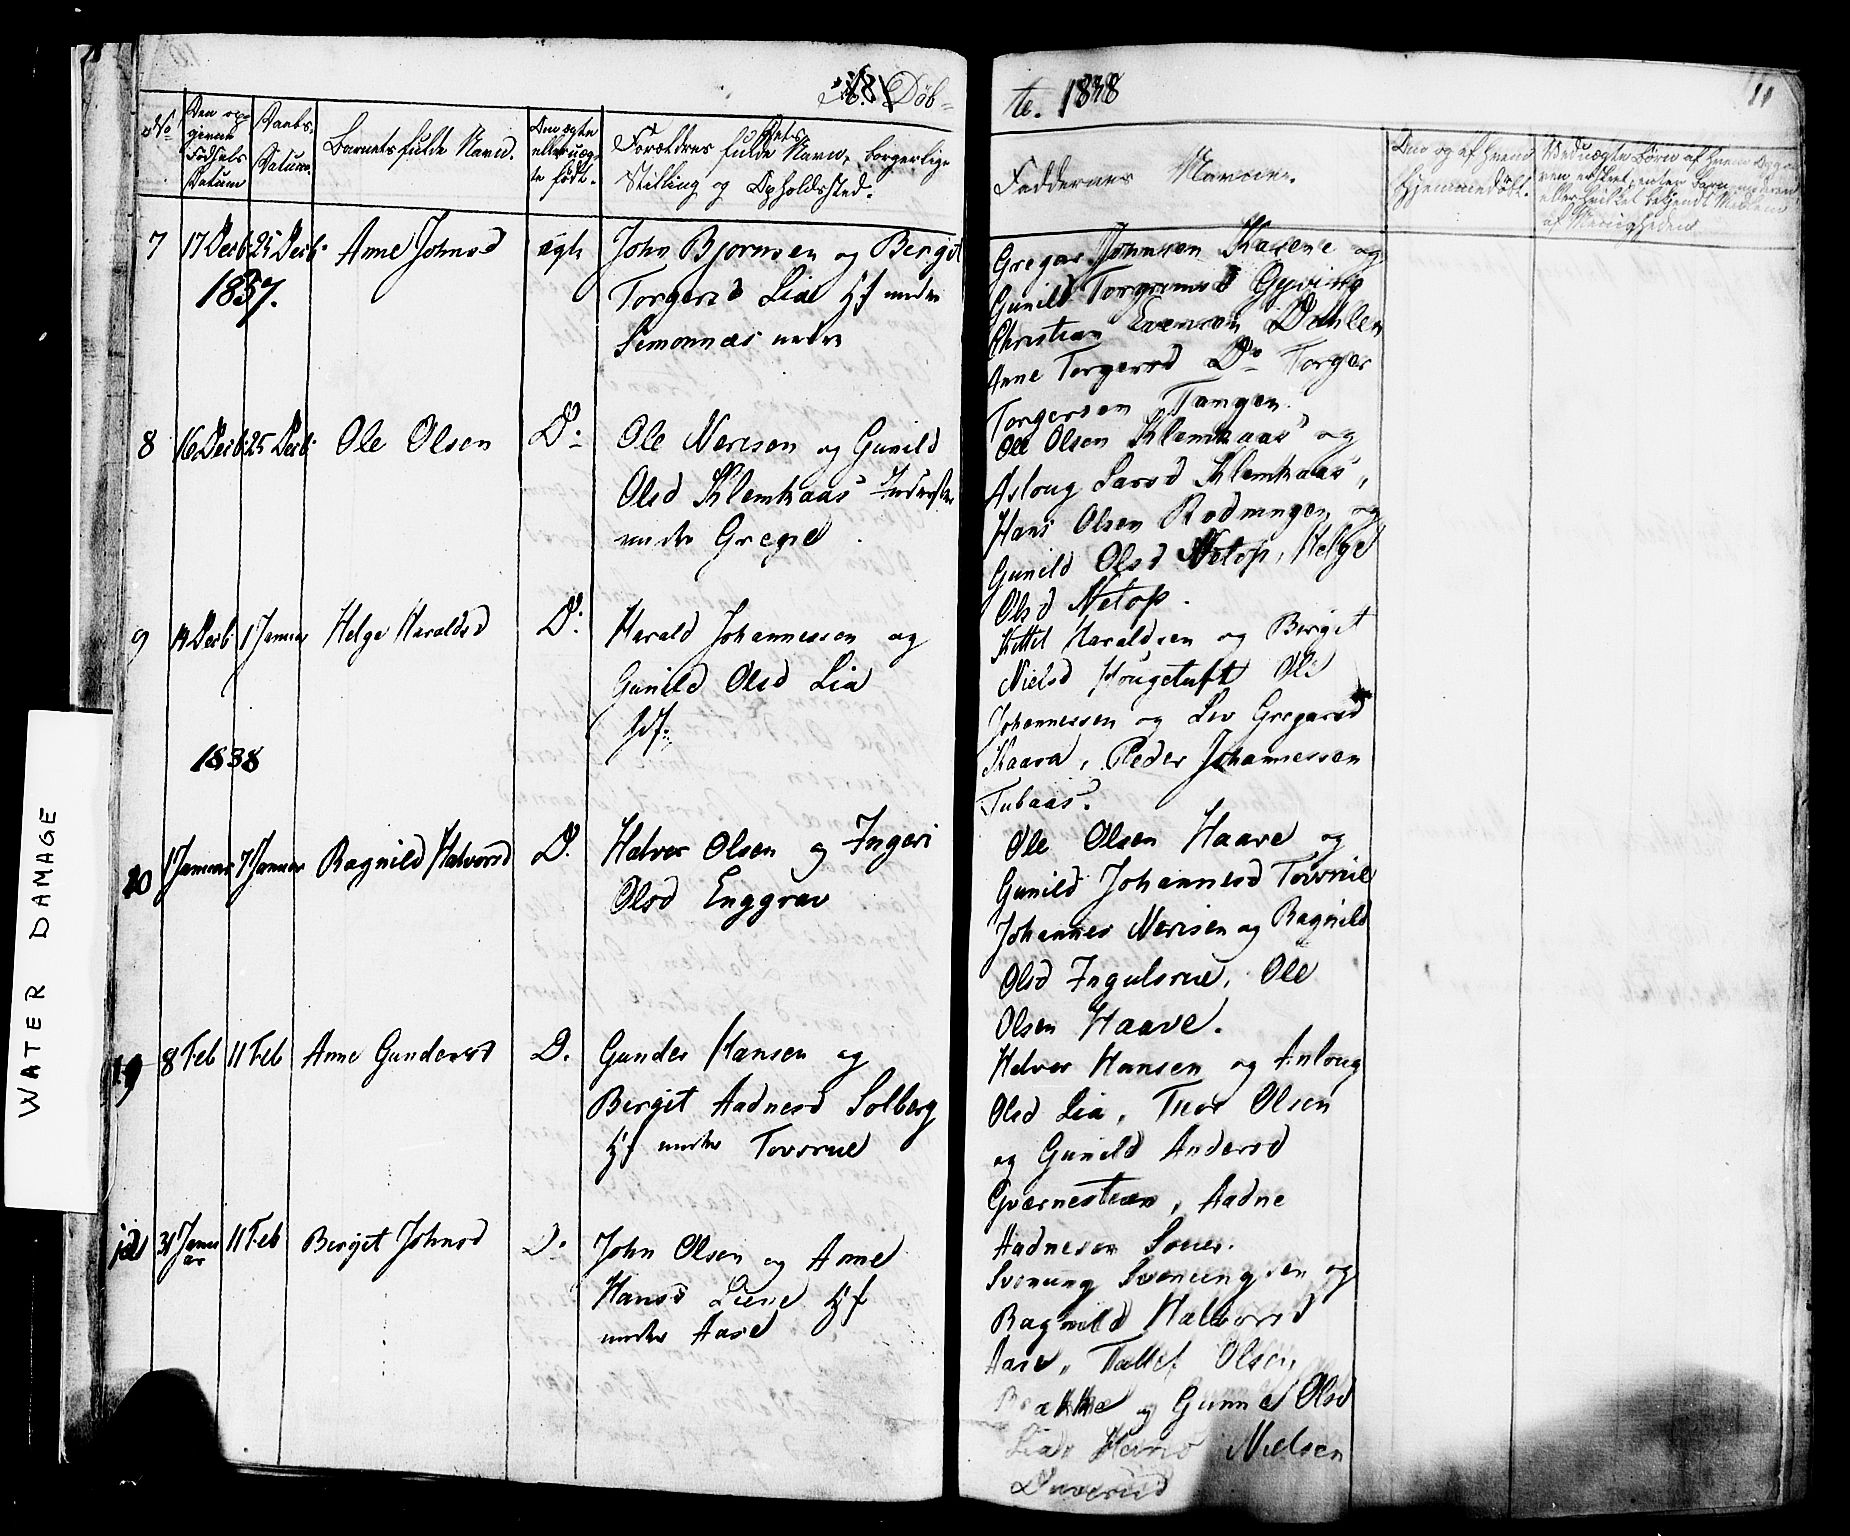 Døb-
te. 1838
11
No
Den op-
givne
Fødsels
Datum
Daabs-
Datum.
Barnets fulde Navn.
Om ægte
eller uæg-
te født.
Forældres fulde Navn, borgerlige
Stilling og Opholdssted.
Faddernes Navne.
Veduægte Børn af hvem
7 17 Decb. 25 Decb. Anne Johnsd ægte John Bjørnsen og Bergit
1837.
Torgersd Lia Hf under
Simonnæs nedre
Gregar Johnsen Kasene og
Gunild Torgrimsd Gyving
Christian Evensen Dahlen
Anne Torgersd Do Torger
Torgersen Tangen.
8 16 Decb. 25 Decb. Ole Olsen D: Ole Nerisen og Gunild
Olsd Klemkaas Inderster
under Gregie
Ole Olsen Klemkaas og
Asloug Larsd Klemkaas,
Hans Olsen Rodningen og
Gunild Olsd Netop, Helge
Olsd Netop.
9 19 Decb. 1 Januar Helge Haraldsd D: Harald Johannessen og
Gunild Olsd Lia
Hf:
Kittel Haraldsen og Bergit
Nielsd Hougetuft Ole
Johannessen og Liv Gregarsd
Kaasa, Peder Johannessen
Tubaas.
1838
10 1 Januar 7 Januar Ragnild Halvorsd D. Halvor Olsen og Ingeri
Olsd Enggrav
Ole Olsen Haave og
Gunild Johannesd Tovsrue
Johannes Nerisen og Ragnild
Olsd Ingulsrue, Ole
Olsen Haave.
8 Feb 11 Feb Anne Gundersd D. Gunder Hansen og
Bergit Aadnesd Solberg
Hf under Tovsrue
Halvor Hansen og Anloug
Olsd Lia, Thor Olsen
og Gunild Andersd
Gvernestuen, Aadne
Aadnesen
31 Janu
ar 11 Feb Bergit Johnsd D. John Olsen og Anne
Hansd Liene Hf
under Aase
Svenung Svenungsen og
Ragnild Halvorsd
Aase, Tallef Olsen
Brække og Gunnil Olsd
Lia Hans Nielsen
WATER DAMAGE